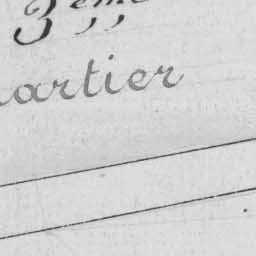 3ème
artier